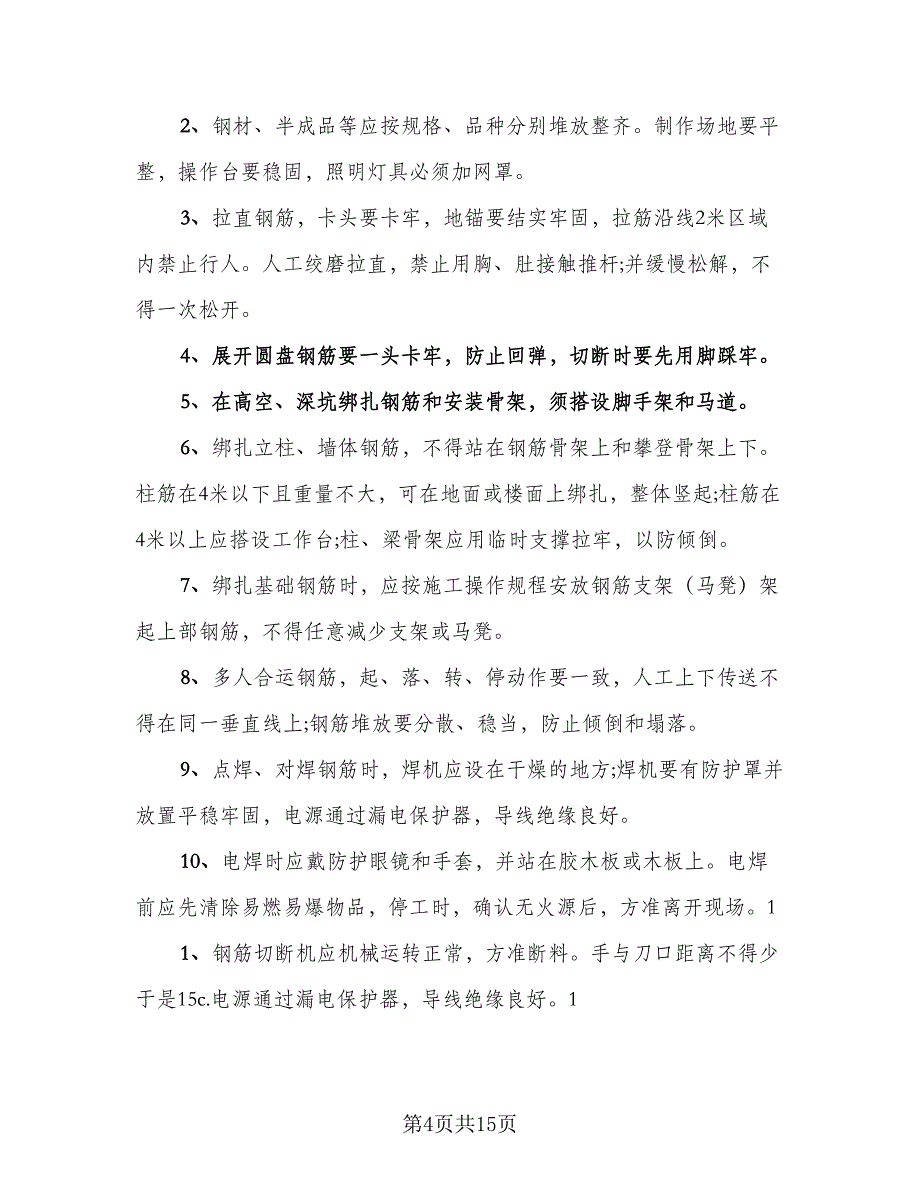 2、钢材、半成品等应按规格、品种分别堆放整齐。制作场地要平
整，操作台要稳固，照明灯具必须加网罩。
3、拉直钢筋，卡头要卡牢，地锚要结实牢固，拉筋沿线2米区域
内禁止行人。人工绞磨拉直，禁止用胸、肚接触推杆;并缓慢松解，不
得一次松开。
4、展开圆盘钢筋要一头卡牢，防止回弹，切断时要先用脚踩牢。
5、在高空、深坑绑扎钢筋和安装骨架，须搭设脚手架和马道。
6、绑扎立柱、墙体钢筋，不得站在钢筋骨架上和攀登骨架上下。
柱筋在4米以下且重量不大，可在地面或楼面上绑扎，整体竖起;柱筋在
4米以上应搭设工作台;柱、梁骨架应用临时支撑拉牢，以防倾倒。
7、绑扎基础钢筋时，应按施工操作规程安放钢筋支架（马凳）架
起上部钢筋，不得任意减少支架或马凳。
8、多人合运钢筋，起、落、转、停动作要一致，人工上下传送不
得在同一垂直线上;钢筋堆放要分散、稳当，防止倾倒和塌落。
9、点焊、对焊钢筋时，焊机应设在干燥的地方;焊机要有防护罩并
放置平稳牢固，电源通过漏电保护器，导线绝缘良好。
10、电焊时应戴防护眼镜和手套，并站在胶木板或木板上。电焊
前应先清除易燃易爆物品，停工时，确认无火源后，方准离开现场。1
1、钢筋切断机应机械运转正常，方准断料。手与刀口距离不得少
于是15c.电源通过漏电保护器，导线绝缘良好。1
第4页共15页